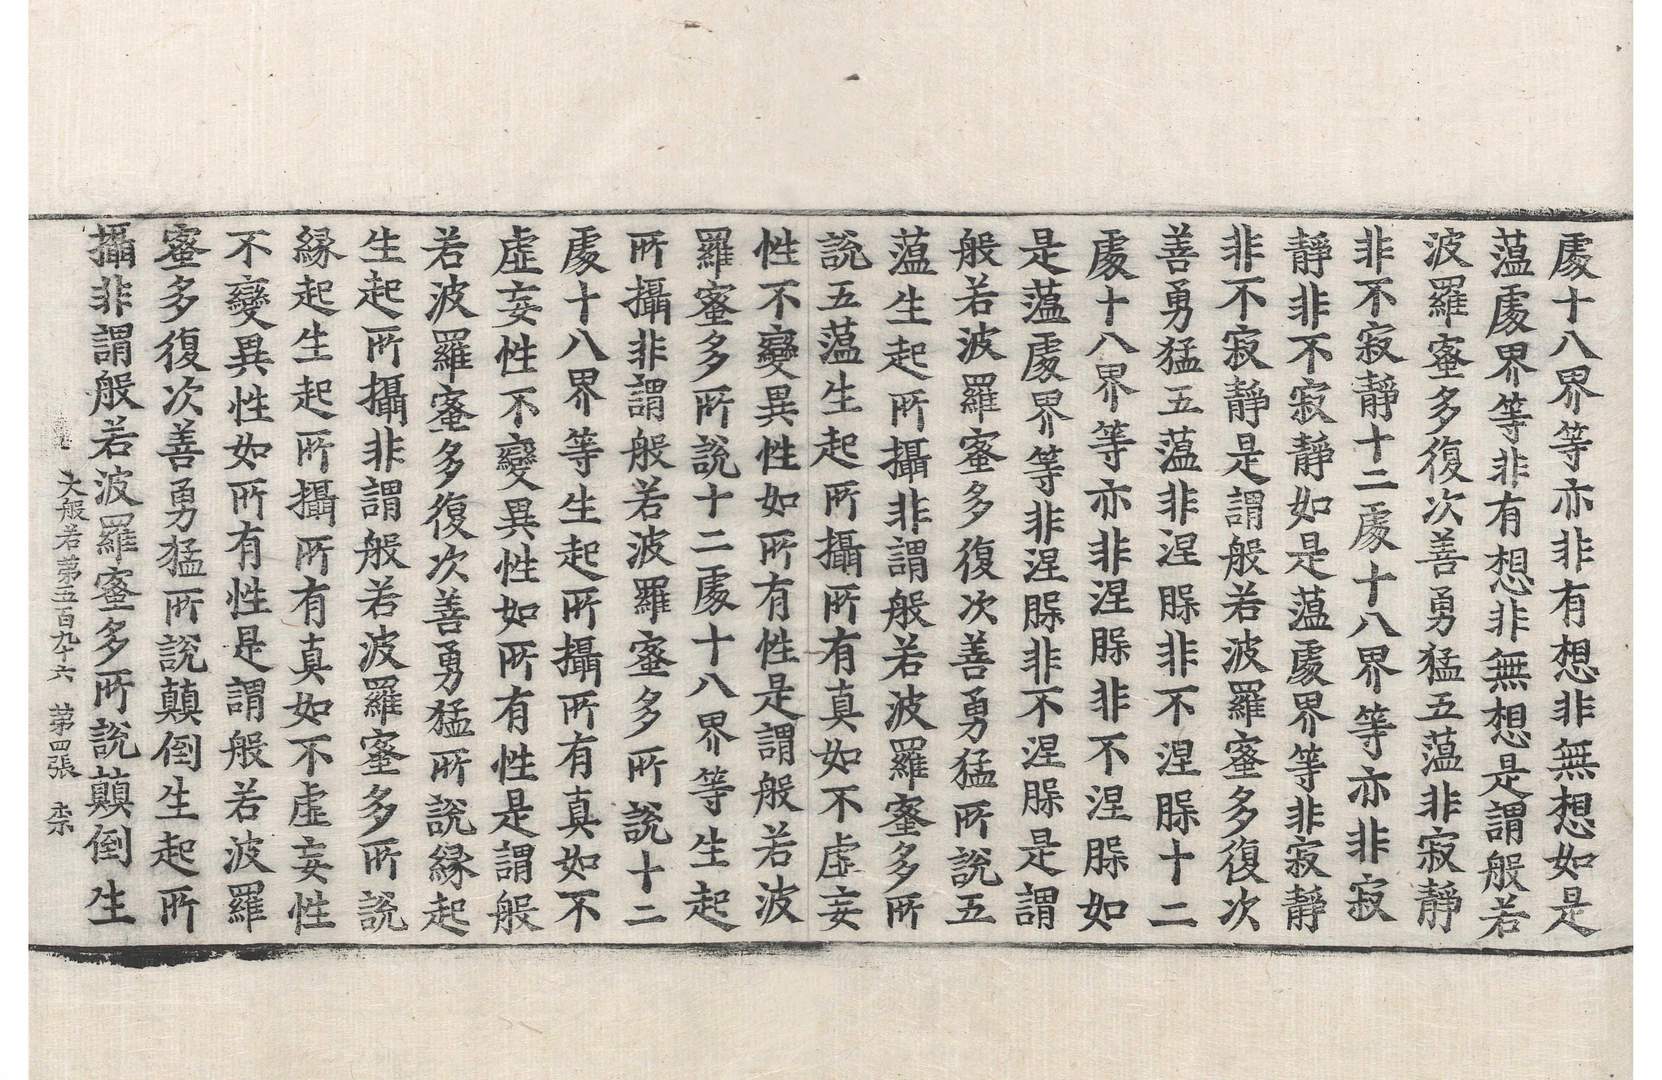 處十八界等亦非有想非無想如是
蕰處界等非有想非無想是謂般若
波羅蜜多復次善勇猛五蕰非寂靜
非不寂靜十二處十八界等亦非寂
靜非不寂靜如是蕰處界等非寂靜
非不寂靜是謂般若波羅蜜多復次
善勇猛五蕰非涅槃非不涅槃十二
處十八界等亦非涅槃非不涅槃如
是蕰處界等非涅槃非不涅槃是謂
般若波羅蜜多復次善勇猛所說五
蕰生起所攝非謂般若波羅蜜多所
說五蕰生起所攝所有真如不虛妄
性不變異性如所有性是謂般若波
羅蜜多所說十二處十八界等生起
所攝非謂般若波羅蜜多所說十二
處十八界等生起所攝所有真如不
虛妄性不變異性如所有性是謂般
若波羅蜜多復次善勇猛所說緣起
生起所攝非謂般若波羅蜜多所說
緣起生起所攝所有真如不虛妄性
不變異性如所有性是謂般若波羅
蜜多復次善勇猛所說顛倒生起所
攝非謂般若波羅蜜多所說顛倒生
大般若第五百九十六 第四張 柰